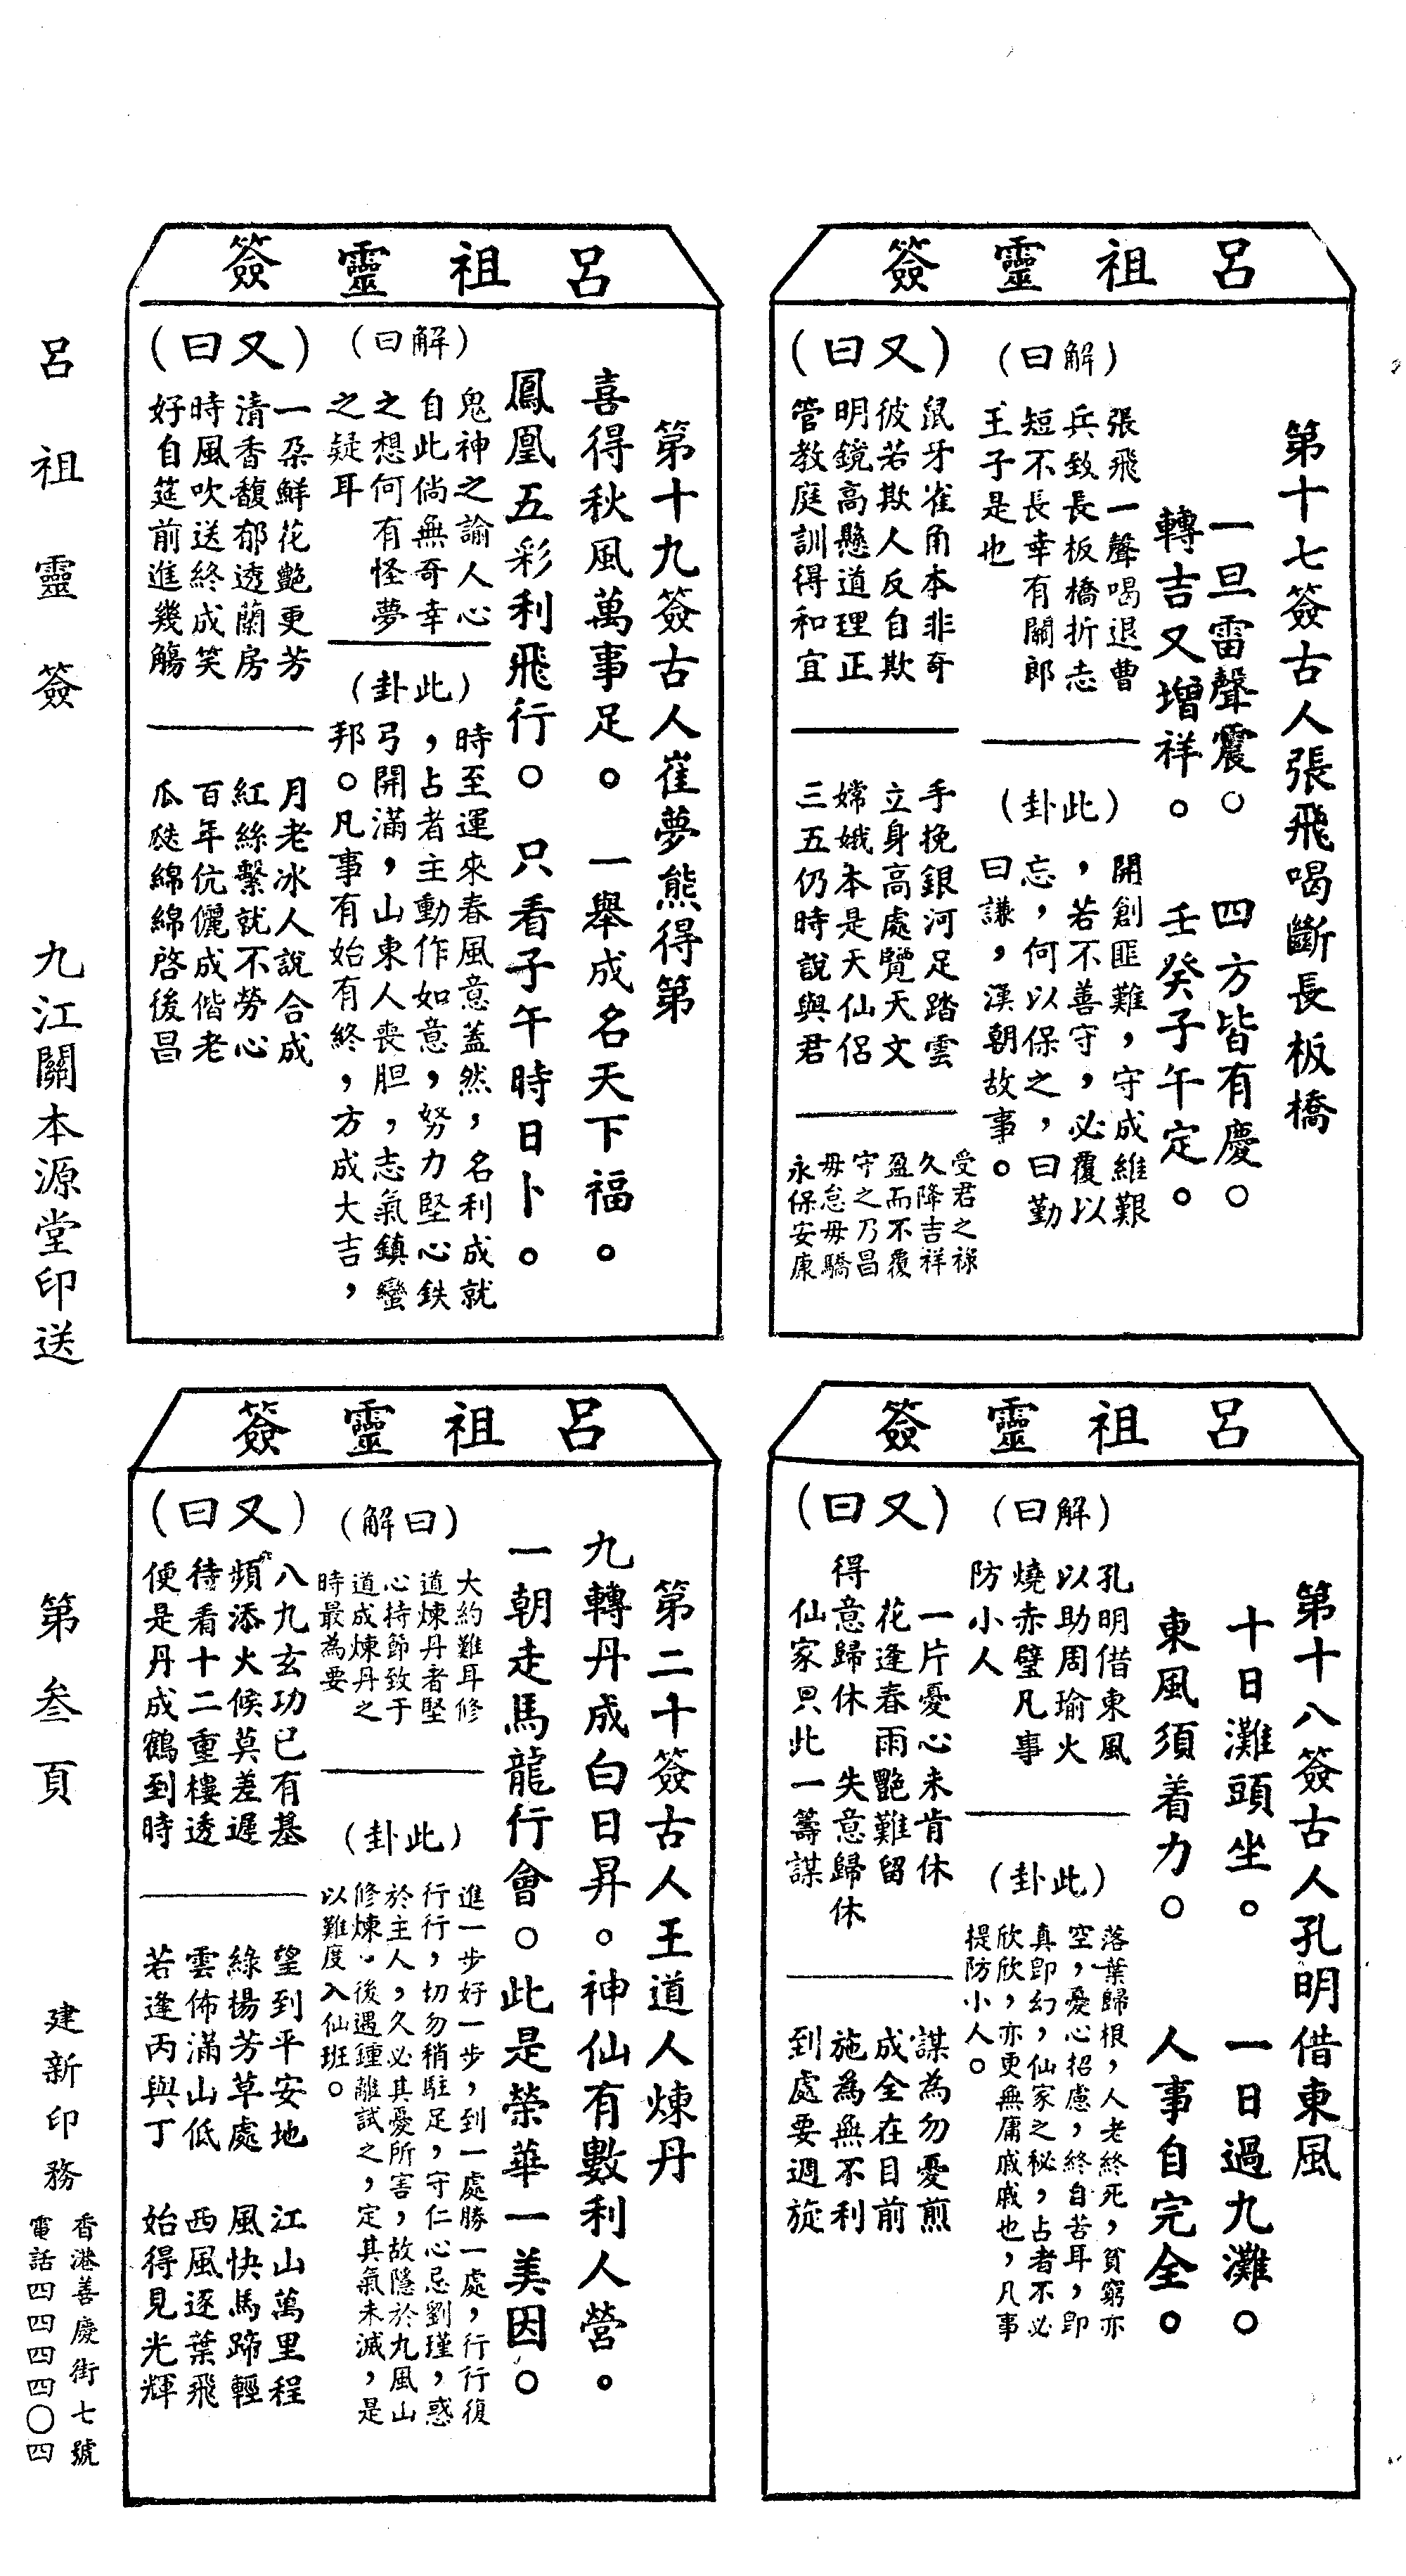 呂祖靈簽
第十七簽古人張飛喝斷長板橋
一旦雷聲震。四方皆有慶。
轉吉又增祥。壬癸子午定。
(解曰)
張飛一聲喝退曹
兵致長板橋折志
短不長幸有關郎
王子是也
(此卦)
開創匪難，守成維艱
，若不善守，必覆以
忘，何以保之，曰勤
曰謙，漢朝故事。
(又曰)
鼠牙雀角本非奇
彼若欺人反自欺
明鏡高懸道理正
管教庭訓得和宜
手挽銀河足踏雲
立身高處覽天文
嫦娥本是天仙侶
三五仍時說與君
受君之祿
久降吉祥
盈而不覆
守之乃昌
毋怠毋驕
永保安康
呂祖靈簽
第十八簽古人孔明借東風
十日灘頭坐。一日過九灘。
東風須着力。人事自完全。
(解曰)
孔明借東風
以助周瑜火
燒赤壁凡事
防小人
(此卦)
落葉歸根，人老終死，貧窮亦
空，憂心招慮，終自苦耳，即
真即幻，仙家之秘，占者不必
欣欣，亦更無庸戚戚也，凡事
提防小人。
(又曰)
一片憂心未肯休
花逢春雨艷難留
得意歸休失意歸休
仙家只此一籌謀
謀為勿憂煎
成全在目前
施為無不利
到處要週旋
呂祖靈簽
第十九簽古人崔夢熊得第
喜得秋風萬事足。一舉成名天下福。
鳳凰五彩利飛行。只看子午時日卜。
(解曰)
鬼神之諭人心
自此倘無奇幸
之想何有怪夢
之疑耳
(此卦)
時至運來春風意蓋然，名利成就
，占者主動作如意，努力堅心鉄
弓開滿，山東人喪胆，志氣鎮蠻
邦。凡事有始有終，方成大吉，
(又曰)
一朶鮮花艶更芳
清香馥郁透蘭房
時風吹送終成笑
好自筵前進幾觴
月老冰人說合成
紅絲繫就不勞心
百年伉儷成偕老
瓜瓞綿綿啓後昌
呂祖靈簽
第二十簽古人王道人煉丹
九轉丹成白日昇。神仙有數利人營。
一朝走馬龍行會。此是榮華一美因。
(解曰)
大約難耳修
道煉丹者堅
心持節致于
道成煉丹之
時最為要
(此卦)
進一步好一步，到一處勝一處，行行復
行行，切勿稍駐足，守仁心忌劉瑾，惑
於主人，久必其憂所害，故隱於九風山
修煉，後遇鍾離試之，定其氣未滅，是
以難度入仙班。
(又曰)
八九玄功已有基
頻添火候莫差遲
待看十二重樓透
便是丹成鶴到時
望到平安地 江山萬里程
綠楊芳草處 風快馬蹄輕
雲佈滿山低 西風逐葉飛
若逢丙與丁 始得見光輝
呂祖靈簽 九江關本源堂印送 第叁頁 建新印務
香港善慶街七號
電話四四四四〇四